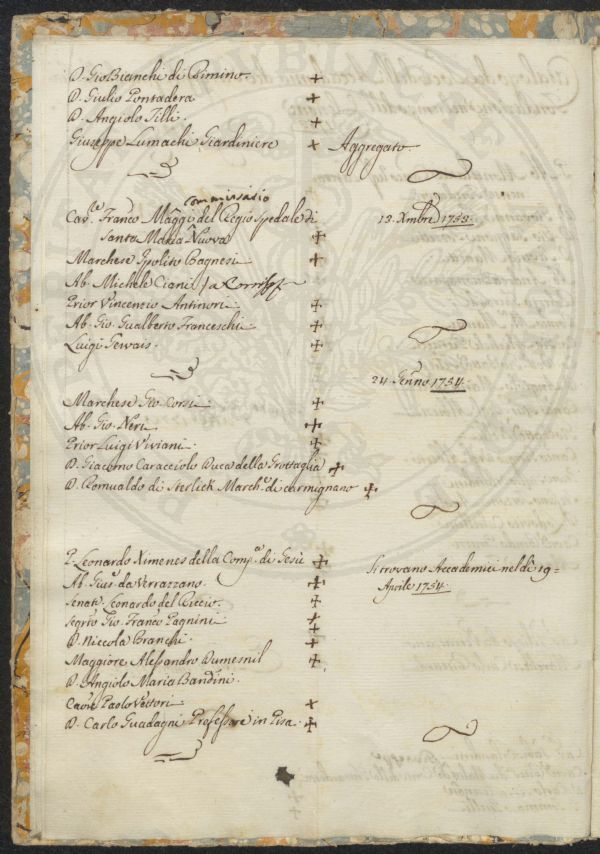 D. Gio Bianchi di Rimino. +
D. Giulio Pontadera +
D. Angiolo Tilli. +
Giuseppe Lumachi Giardiniere + Aggregato.
Commissario
Cav.re Franco Maggi del Regio Spedale di 13. Xmbre 1753.
Santa Maria Nuova +
Marchese Ipolito Bagnesi +
Ab. Michele Ciani
Prior Vincenzio Antinori +
Ab. Gio. Gualberto Franceschi +
Luigi Gervais. +
24 Genno 1754.
Marchese Gio. Corsi. +
Ab. Gio. Neri +
Prior Luigi Viviani. +
D. Giacomo Caracciolo Duca della Grottaglia +
D. Romualdo di Sterlick March.e di Cermignano +
P. Leonardo Ximenes della Comp.a di Gesù + Si trovano Accademici nel dì 19=
Ab. Gius.e da Verrazzano. + Aprile 1754.
Senat.e Leonardo del Riccio. +
Segrio Gio. Franco Pagnini +
D. Niccola Branchi +
Maggiore Alessandro Dumesnil +
D. Angiolo Maria Bandini.
Cavre Paolo Vettori +
D. Carlo Guadagni Professore in Pisa. +